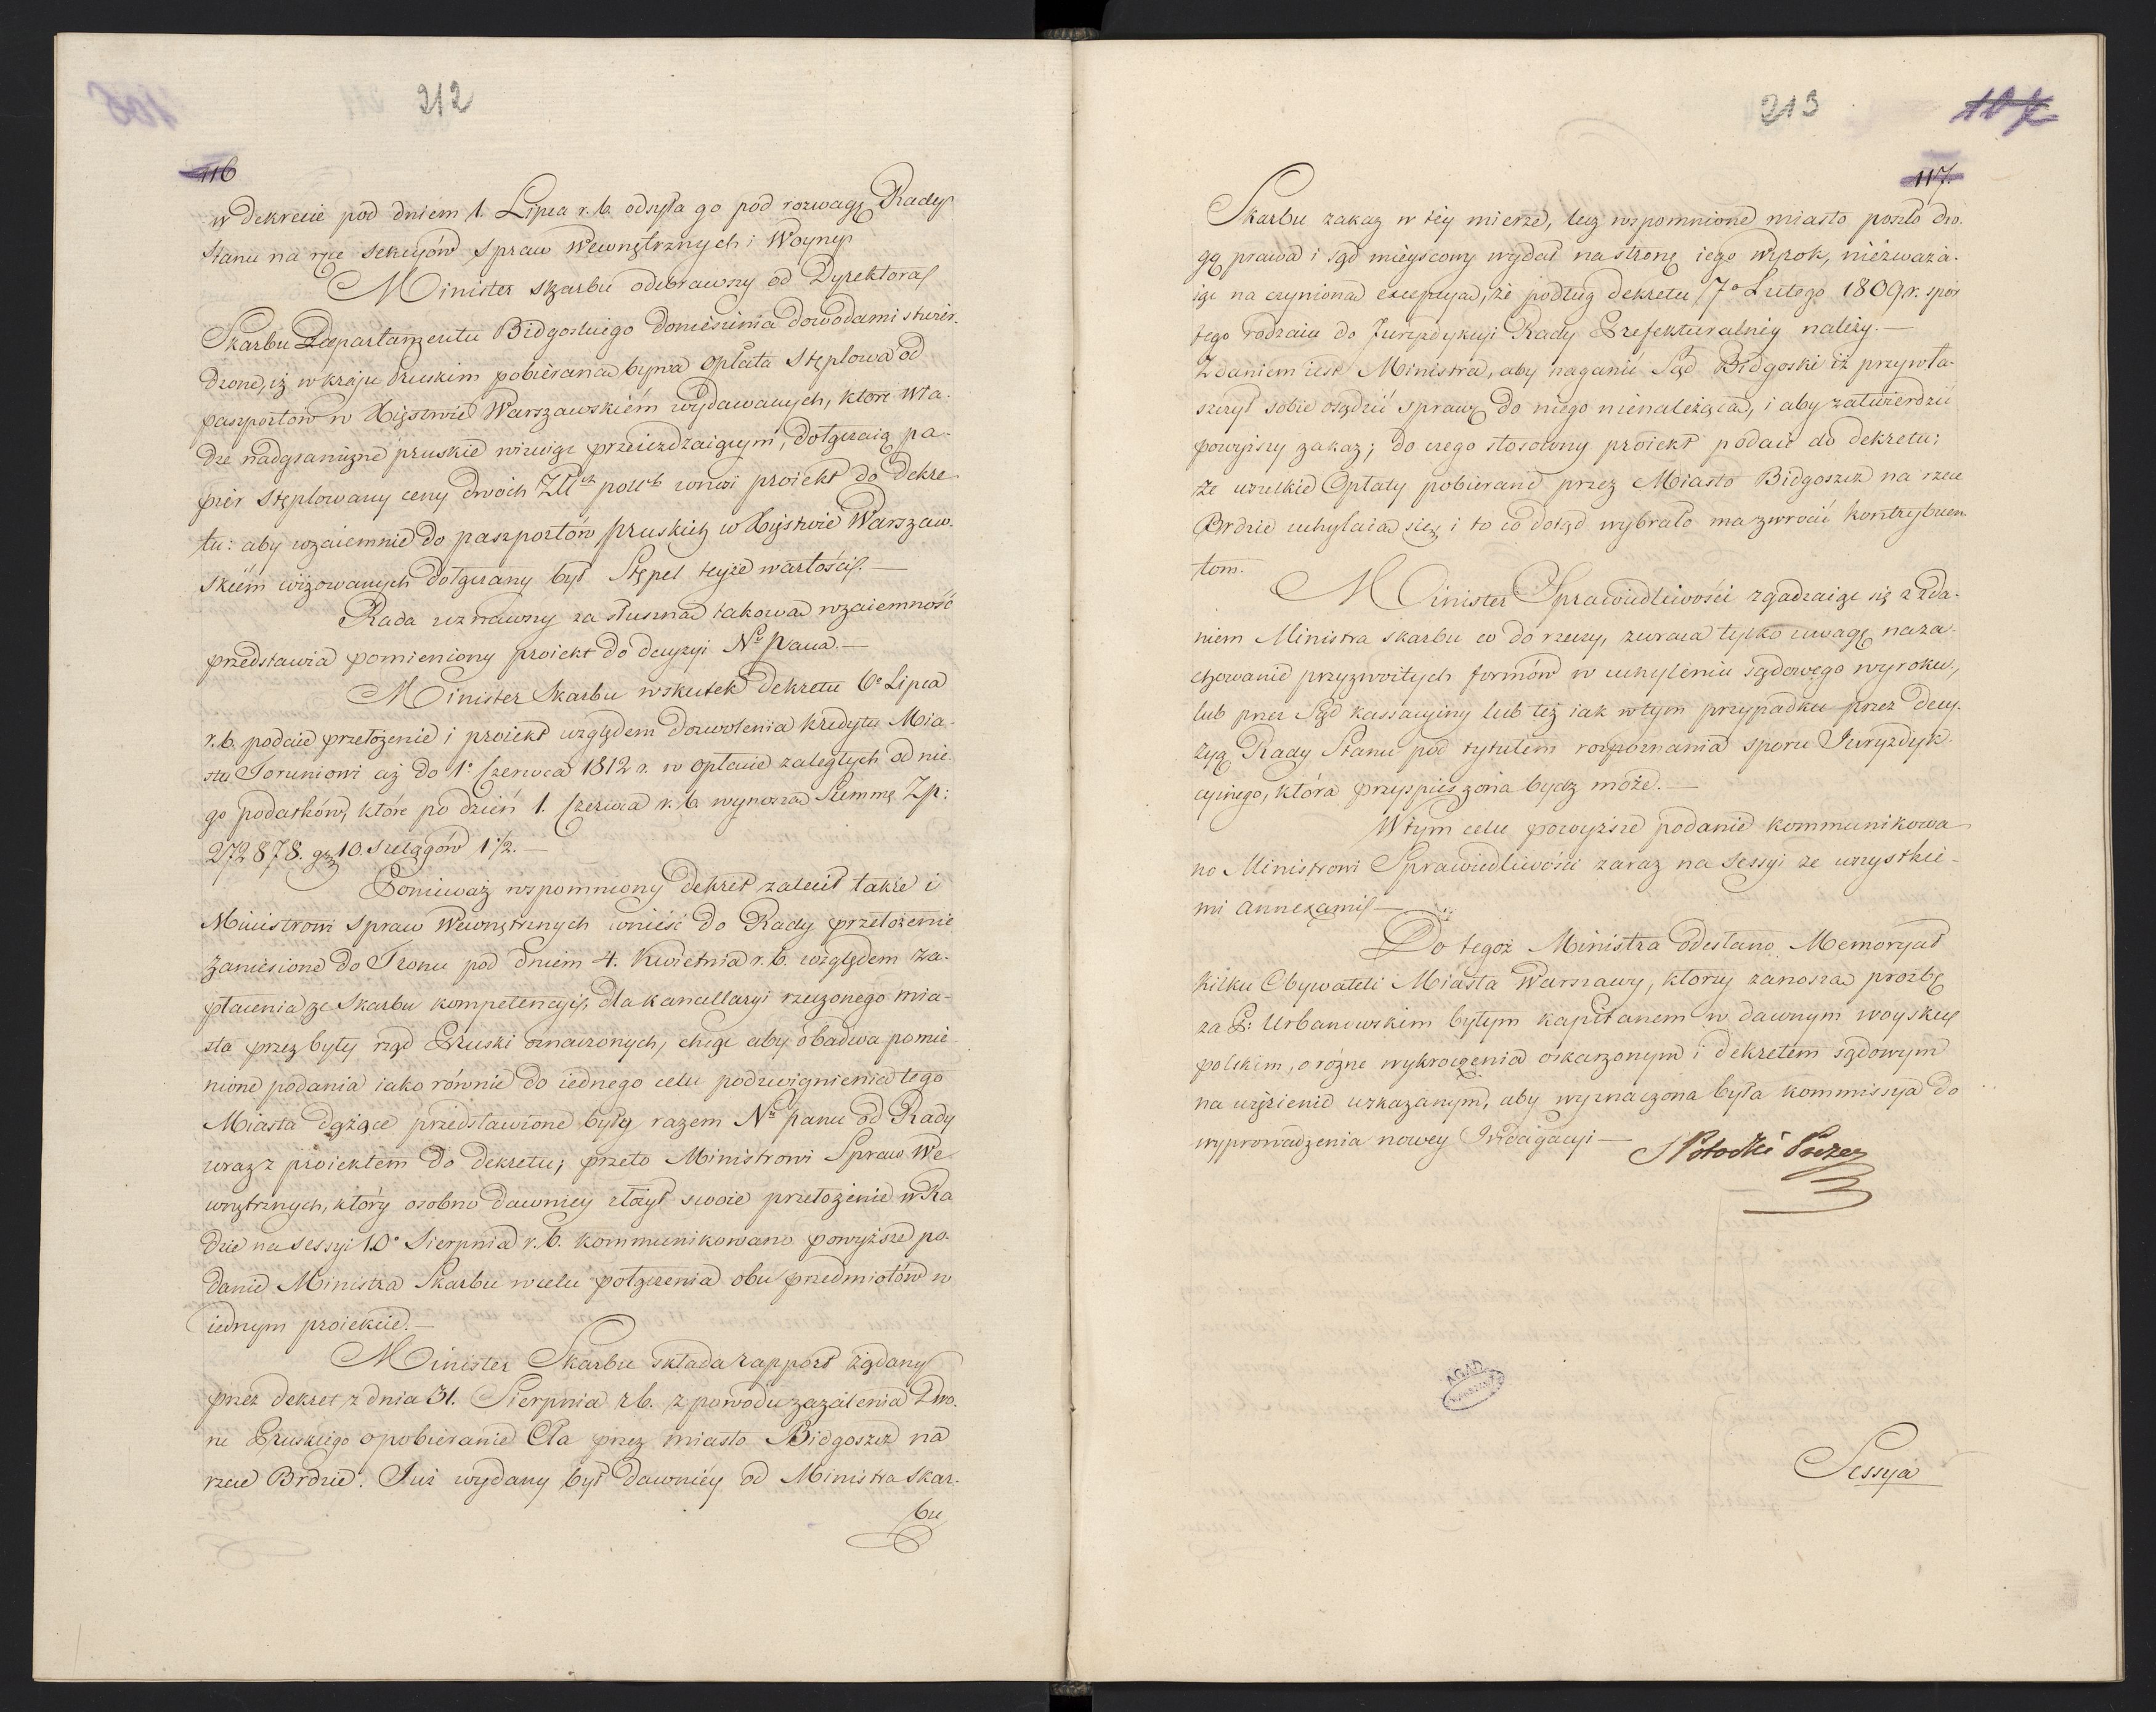 212
116
w dekrecie pod dniem 1. Lipca r. b. odsyła go pod rozwagę Rady
Stanu na ręce sekcyiów spraw Wewnętrznych i Woyny.
Minister skarbu odebrawszy od Dyrektora
Skarbu Departamentu Bidgoskiego doniesienia dowodami stwier-
dzone, iż w kraju Pruskim pobierana bywa opłata Stęplowa od
paszportów w Xięstwie Warszawskiém wydawanych, które Wła-
dze nadgraniczne pruskie wizuiąc przeieżdzaiącym, dołączaią pa-
piér stęplowany ceny dwóch Złł pol wnosi proiekt do dekre-
tu: aby wzaiemnie do paszportów pruskich w Xięstwie Warszaw-
skiém wizowanych dołączany był Stępel teyże wartości. —
Rada uznawszy za słuszną takową wzaiemność
przedstawia pomieniony proiekt do decyzyi N° Pana. —
Minister Skarbu wskutek dekretu 6° Lipca
r. b. podaie przełożenie i proiekt względem dozwolenia kredytu Mia-
stu Toruniowi aż do 1° Czerwca 1812 r. w opłacie zaległych od nie-
go podatków, które po dzień 1. Czerwca r. b. wynoszą Summę Zp:
272878. gr 10. szelągów 1½. —
Ponieważ wspomniony dekret zalecił także i
Ministrowi spraw Wewnętrznych wnieść do Rady przełożenie
zaniesione do Tronu pod dniem 4. Kwietnia r. b. względem za-
płacenia ze Skarbu kompetencyi, dla kancellaryi rzeczonego mia-
sta przez były rząd Pruski oznaczonych, chcąc aby obadwa pomie-
nione podania iako równie do iednego celu podzwignienia tego
Miasta dążące przedstawione były razem N panu od Rady
wraz z proiektem do dekretu; przeto Ministrowi Spraw We-
wnętrznych, który osobno dawniey złożył swoie przełożenie w Ra-
dzie na sessyi 10° Sierpnia r. b. kommunikowano powyższe po-
danie Ministra Skarbu w celu połączenia obu przedmiotów w
iednym proiekcie. —
Minister Skarbu składa rapport żądany
przez dekret z dnia 31. Sierpnia r b. z powodu zażalenia Dwo-
ru Pruskiego o pobieranie Cła przez miasto Bidgoszcz na
rzece Brdzie. Już wydany był dawniéy od Ministra Skar-
bu
213
107
117.
Skarbu zakaz w téy mierze, lecz wspomnione miasto poszło dro-
gą prawa i sąd mieyscowy wydał na stronę iego wyrok, nieuważa-
iąc na czynioną excepcyą, że podług dekretu 7° Lutego 1809 r. spór
tego rodzaiu do Juryzdykcyi Rady Prefekturalnéy należy. —
Zdaniem iest Ministra, aby naganić Sąd Bidgoski iż przywła-
szczył sobie osądzić sprawę do niego nienależącą, i aby zatwierdzić
powyższy zakaz; do czego stosowny proiekt podaie do dekretu;
że wszelkie Opłaty pobierane przez Miasto Bidgoszcz na rzece
Brdzie uchylaią się, i to co dotąd wybrało ma zwrócić kontrybuen-
tom.
Minister Sprawiedliwości zgadzaiąc się z zda-
niem Ministra skarbu co do rzeczy, zwraca tylko uwagę na za-
chowanie przyzwoitych formów w uchyleniu sądowego wyroku,
lub przez Sąd kassacyiny lub też iak w tym przypadku przez decy-
zyą Rady Stanu pod tytułem rozpoznania sporu Juryzdyk-
cyinego, która przyspieszona bydz może. —
W tym celu powyższe podanie kommunikowa-
no Ministrowi Sprawiedliwości zaraz na sessyi ze wszystkie-
mi annexami —
Do tegoż Ministra odesłano Memoryał
kilku Obywateli Miasta Warszawy, którzy zanoszą prozbę
za P: Urbanowskim byłym kapitanem w dawnym woysku
polskim, o różne wykroczenia oskarzonym i dekretem sądowym
na więzienie wskazanym, aby wyznaczona była kommissya do
wyprowadzenia nowey Indagacyi —
S Potocki Prezes
AGAD
Sessya